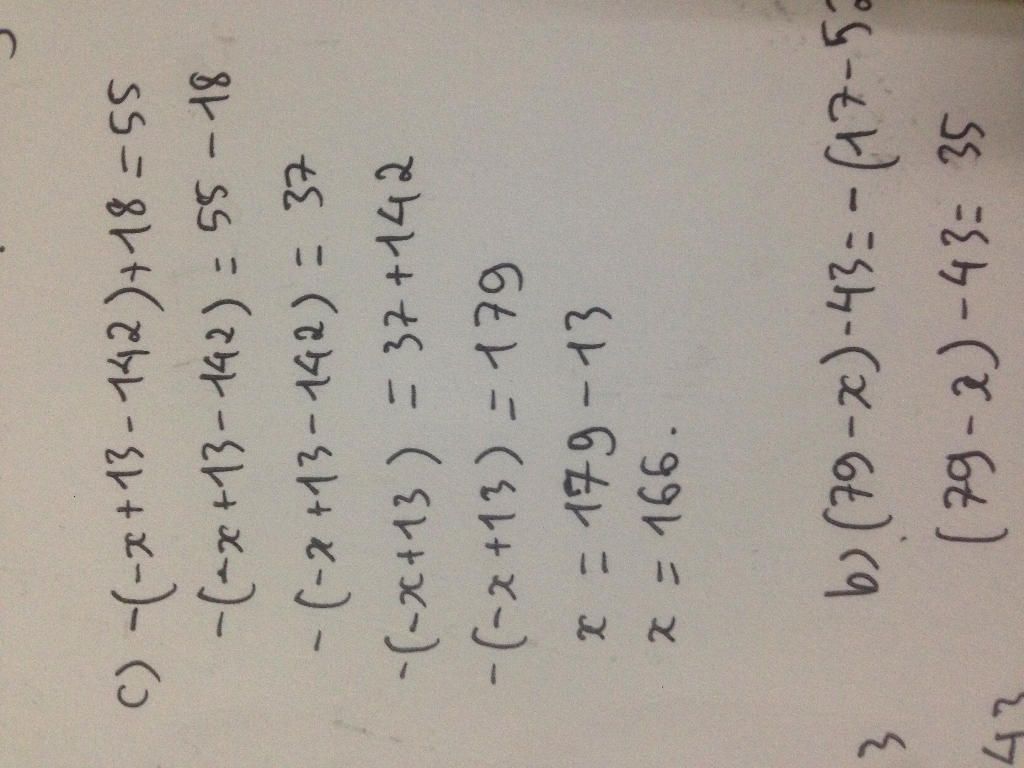 c) -(-x+13-142)+18=55
-(-x+13-142) = 55-18
-(-x+13-142) = 37
-(-x+13) = 37+142
-(-x+13) = 179
x = 179-13
x = 166.
3
b) (79-x)-43=-(17-5
43
(79-x)-43= 35